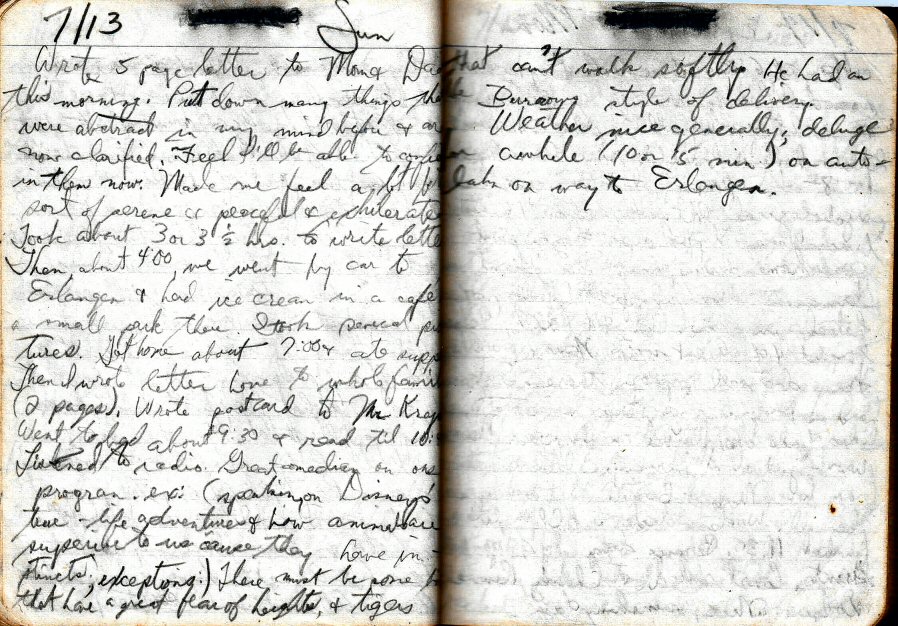 7/13 Sun
Wrote 5 page letter to Mom & Dad
this morning. Put down many things
were abstract in my mind before &
now clarified. Feel I'll be able to
in them now. Made me feel a lot
sort of serene & peaceful & exhilerated
Took about 3 or 3 ½ hrs. to write letter
Then, about 4:00, we went by car to
Erlangen & had ice cream in a cafe
a small park there. I took several pic
tures. Got home about 7:00 & ate supp
Then I wrote letter home to whole family
(2 pages). Wrote postcard to Mr
Went to bed about 9:30 & read til 10:
Listened to radio. Great comedian on one
program. ex: (speaking on Disney's
true-life adventures & how animals are
superior to us cause they have in-
stincts, exceptions:) There must be some
that have a great fear of heights, & tigers
that can't walk softly. He had an
style of delivery.
Weather nice generally; deluge
awhile (10 or 15 min.) on auto-
bahn on way to Erlangen.